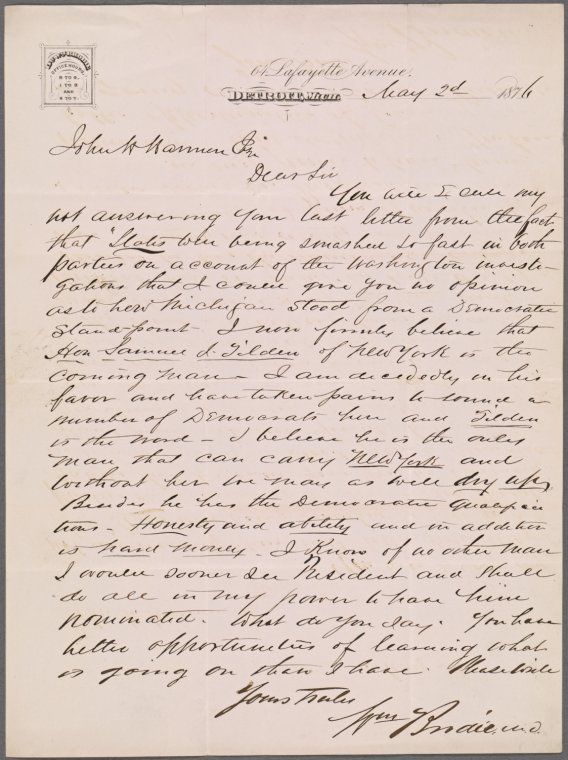 OFFICE HOURS
8 TO 9,
1 TO 2
AND
6 TO 7.
64 Lafayette Avenue.
DETROIT, Mich. May 2d 1876
John H Harmon Esq
Dear Sir
You will Excuse my
not answering your last letter from the fact
that "Slates were being smashed so fast in both
parties on account of the Washington investi-
gations that I could give you no opinion
as to how Michigan stood from a Democratic
Stand-point. I now firmly believe that
Hon. Samuel J. Tilden of New York is the
coming man - I am decidedly in his
favor and have taken pains to sound a
number of Democrats here and Tilden
is the word - I believe he is the only
man that can carry New York and
without her we may as well dry up.
Besides he has the Democratic qualifica
tions - Honesty and ability and in addition
is hard money. I know of no other man
I would sooner see President and shall
do all in my power to have him
nominated. What do you say. You have
better opportunities of learning what
is going on than I have. Please write
Yours truly
Wm Brodie, M.D.